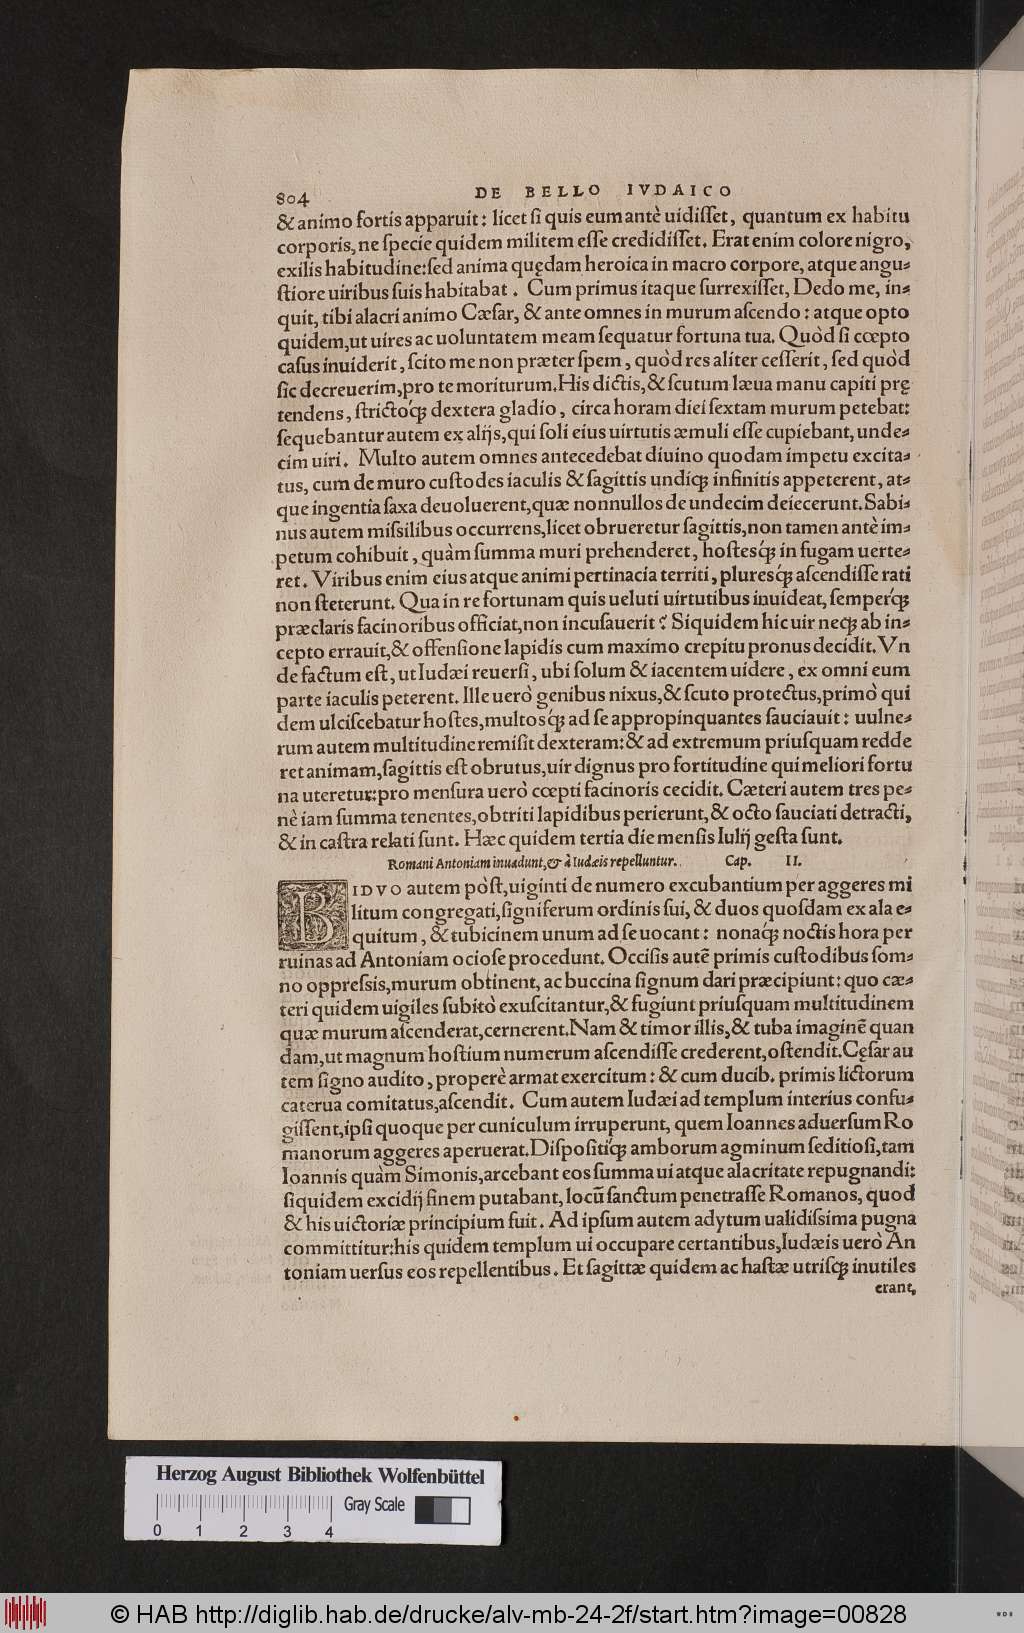 804 DE BELLO IVDAICO
& animo fortis apparuit: licet ſi quis eum antè uidiſſet, quantum ex habitu
corporis, ne ſpecie quidem militem eſſe credidiſſet. Erat enim colore nigro,
exilis habitudine: ſed anima quędam heroica in macro corpore, atque angu-
ſtiore uiribus ſuis habitabat. Cum primus itaque ſurrexiſſet, Dedo me, in-
quit, tibi alacri animo Cæſar, & ante omnes in murum aſcendo: atque opto
quidem, ut uires ac uoluntatem meam ſequatur fortuna tua. Quòd ſi cœpto
caſus inuiderit, ſcito me non præter ſpem, quòd res aliter ceſſerit, ſed quòd
ſic decreuerim, pro te moriturum. His dictis, & ſcutum læua manu capiti prę
tendens, ſtrictoq́; dextera gladio, circa horam diei ſextam murum petebat:
ſequebantur autem ex alijs, qui ſoli eius uirtutis æmuli eſſe cupiebant, unde-
cim uiri. Multo autem omnes antecedebat diuino quodam impetu excita-
tus, cum de muro cuſtodes iaculis & ſagittis undiq; infinitis appeterent, at-
que ingentia ſaxa deuoluerent, quæ nonnullos de undecim deiecerunt. Sabi-
nus autem miſsilibus occurrens, licet obrueretur ſagittis, non tamen antè im-
petum cohibuit, quàm ſumma muri prehenderet, hoſtesq́; in fugam uerte-
ret. Viribus enim eius atque animi pertinacia territi, pluresq́; aſcendiſſe rati
non ſteterunt. Qua in re fortunam quis ueluti uirtutibus inuideat, ſemperq́;
præclaris facinoribus officiat, non incuſauerit? Siquidem hic uir neq; ab in-
cepto errauit, & offenſione lapidis cum maximo crepitu pronus decidit. Vn
de factum eſt, ut Iudæi reuerſi, ubi ſolum & iacentem uidere, ex omni eum
parte iaculis peterent. Ille uerò genibus nixus, & ſcuto protectus, primò qui
dem ulciſcebatur hoſtes, multosq́; ad ſe appropinquantes ſauciauit: uulne-
rum autem multitudine remiſit dexteram: & ad extremum priuſquam redde
ret animam, ſagittis eſt obrutus, uir dignus pro fortitudine qui meliori fortu
na uteretur: pro menſura uerò cœpti facinoris cecidit. Cæteri autem tres pe-
nè iam ſumma tenentes, obtriti lapidibus perierunt, & octo ſauciati detracti,
& in caſtra relati ſunt. Hæc quidem tertia die menſis Iulij geſta ſunt.
Romani Antoniam inuadunt, & à Iudæis repelluntur. Cap. II.
BIDVO autem pòſt, uiginti de numero excubantium per aggeres mi
litum congregati, ſigniferum ordinis ſui, & duos quoſdam ex ala e-
quitum, & tubicinem unum ad ſe uocant: nonaq́; noctis hora per
ruinas ad Antoniam ocioſe procedunt. Occiſis autẽ primis cuſtodibus ſom-
no oppreſsis, murum obtinent, ac buccina ſignum dari præcipiunt: quo cæ-
teri quidem uigiles ſubitò exuſcitantur, & fugiunt priuſquam multitudinem
quæ murum aſcenderat, cernerent. Nam & timor illis, & tuba imaginẽ quan
dam, ut magnum hoſtium numerum aſcendiſſe crederent, oſtendit. Cęſar au
tem ſigno audito, properè armat exercitum: & cum ducib. primis lictorum
caterua comitatus, aſcendit. Cum autem Iudæi ad templum interius confu-
giſſent, ipſi quoque per cuniculum irruperunt, quem Ioannes aduerſum Ro
manorum aggeres aperuerat. Diſpoſitiq́; amborum agminum ſeditioſi, tam
Ioannis quàm Simonis, arcebant eos ſumma ui atque alacritate repugnandi:
ſiquidem excidij finem putabant, locũ ſanctum penetraſſe Romanos, quod
& his uictoriæ principium fuit. Ad ipſum autem adytum ualidiſsima pugna
committitur: his quidem templum ui occupare certantibus, Iudæis uerò An
toniam uerſus eos repellentibus. Et ſagittæ quidem ac haſtæ utriſq; inutiles
erant,
Herzog August Bibliothek Wolfenbüttel
Gray Scale
0 1 2 3 4
© HAB http://diglib.hab.de/drucke/alv-mb-24-2f/start.htm?image=00828